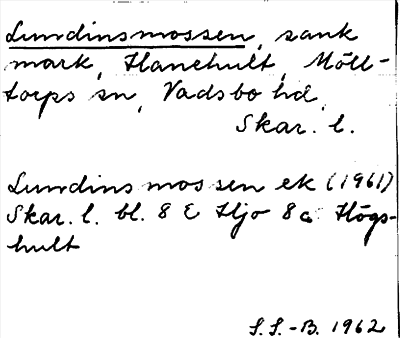 Lundinsmossen, sank
mark, Hanehult, Möll-
torps sn, Vadsbo hd,
Skar. l.
Lundinsmossen ek (1961)
Skar. l. bl. 8 E Hjo 8a Högs-
hult
S.S.-B. 1962